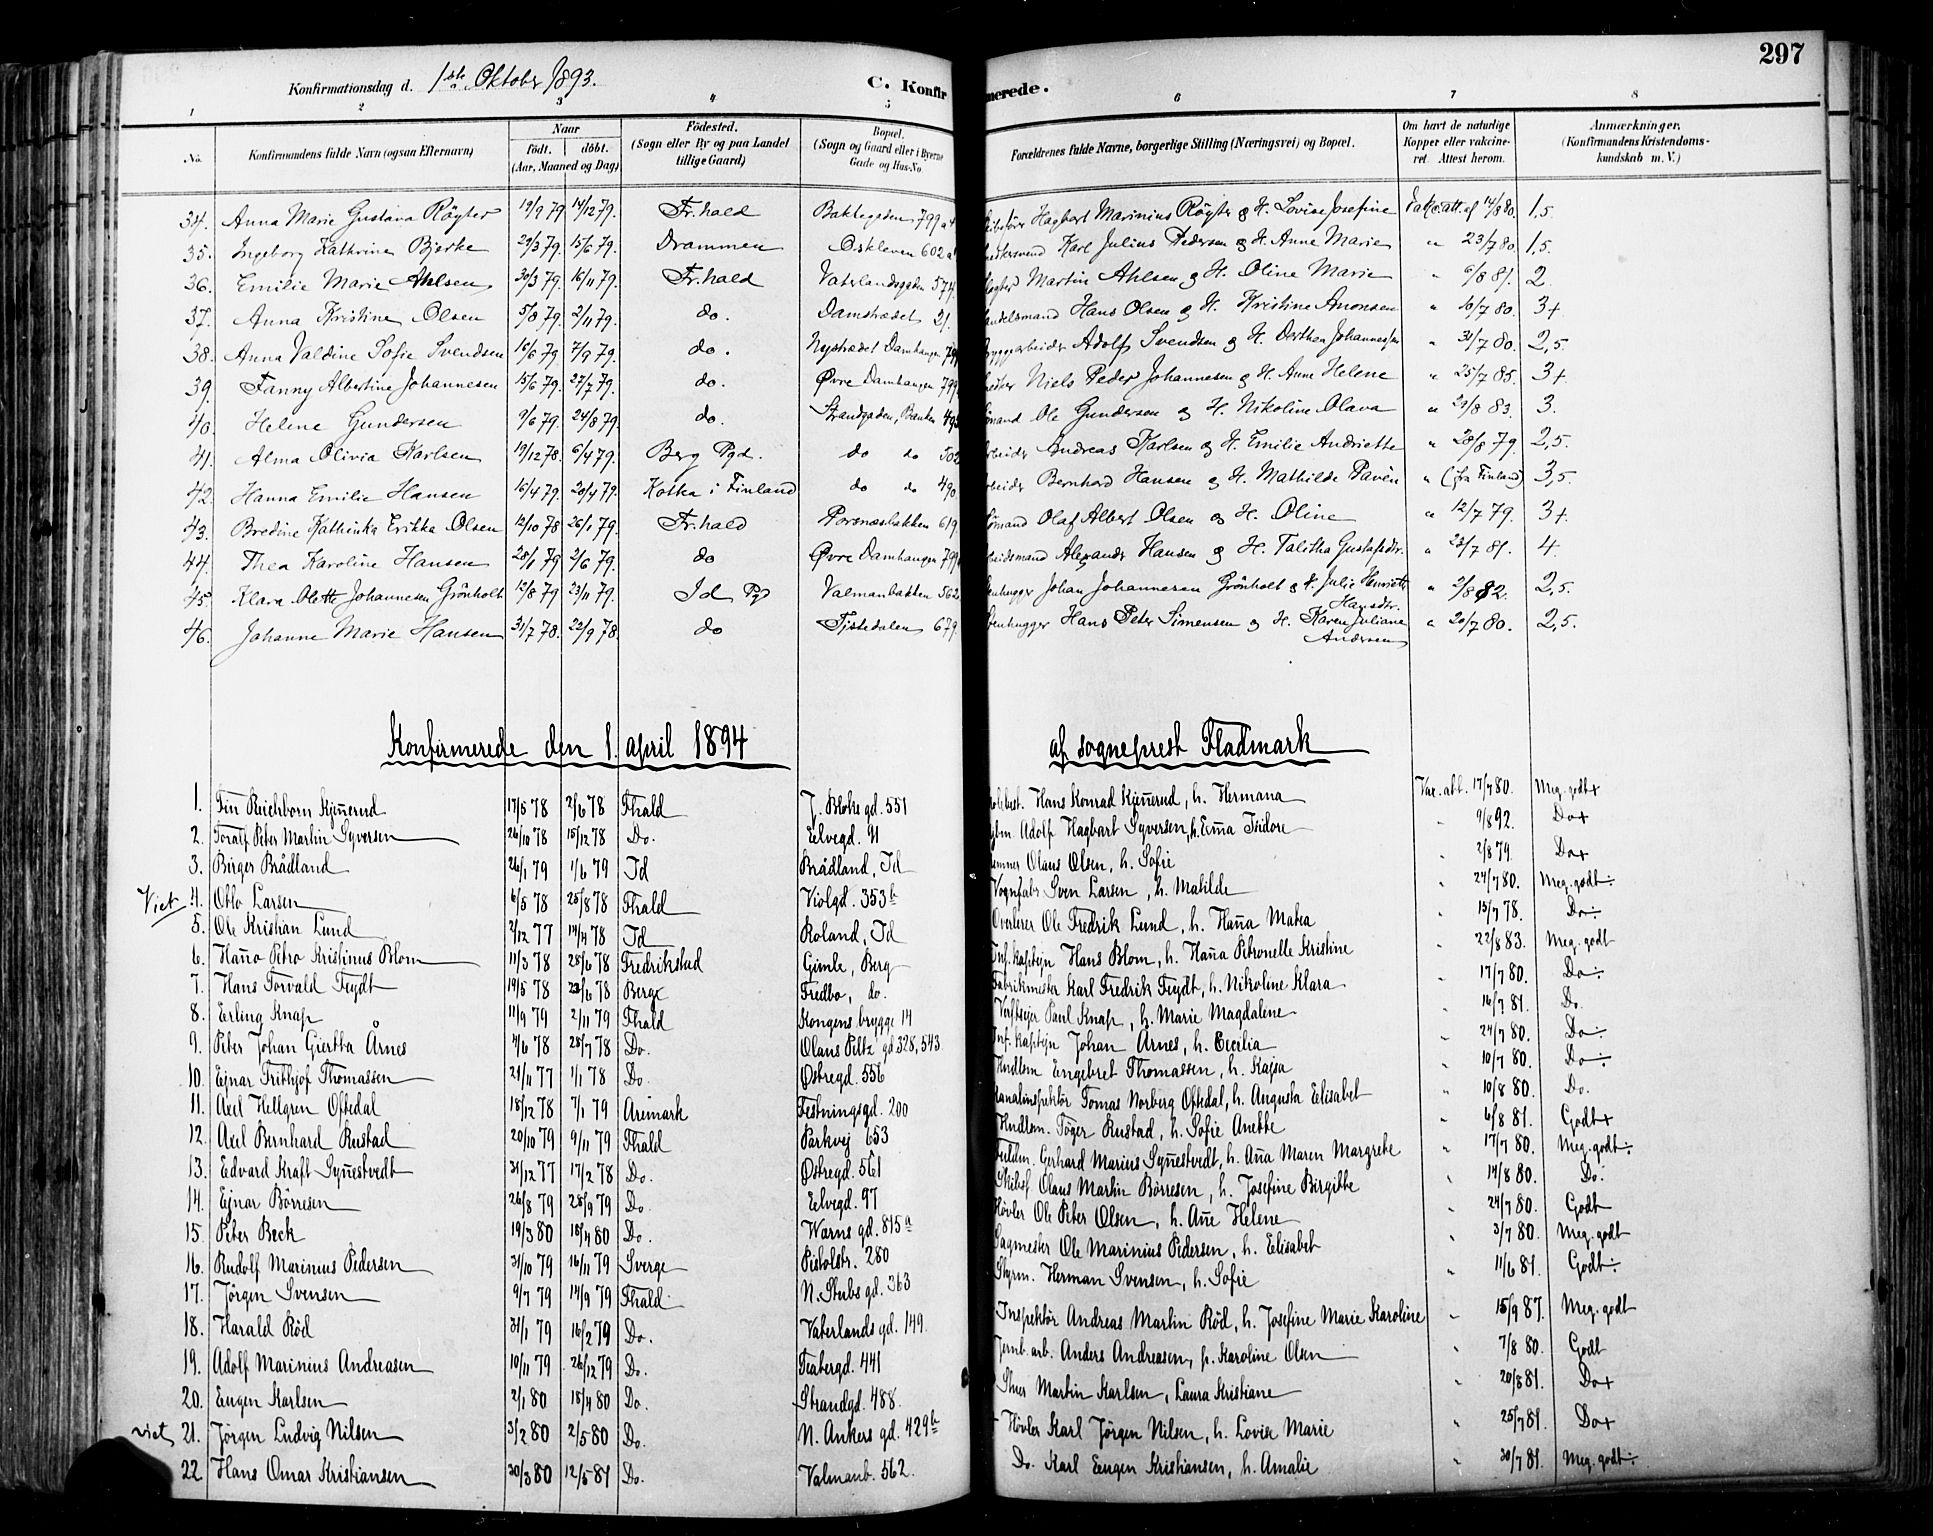 297
Konfirmationsdag d. 1ste Oktober 1893. C. Konfirmerede.
1 2 3 4 5 6 7 8
No. Konfirmandens fulde Navn (ogsaa Efternavn) Naar født. døbt. (Aar, Maaned og Dag) Fødested. (Sogn eller By og paa Landet tillige Gaard) Bopæl. (Sogn og Gaard eller i Byerne Gade og Hus-No. Forældrenes fulde Navne, borgerlige Stilling (Næringsvei) og Bopæl. Om havt de naturlige Kopper eller vakcineret. Attest herom. Anmærkninger. (Konfirmandens Kristendomskundskab m. V.)
34. Anna Marie Gustava Røyter 19/9 79 14/12 79. Fr.hald Bakkegaden 799 Hagbart Marinius Røyter & H. Lovise Josefine Vakc. att. af 14/8 80. 1,5.
35. Ingeborg Kathrine Bjerke 29/3 79. 15/6 79. Drammen Oskleven 602 Karl Julius Pedersen & H. Anne Marie " 23/7 80. 1,5.
36. Emilie Marie Ahlsen 30/3 79. 16/11 79. Fr.hald Vaterlandsgaden 574. Martin Ahlsen & H. Oline Marie " 6/8 81. 2.
37. Anna Kristine Olsen 5/8 79. 2/11 79. do. Damstrædet 21. Handelsmand Hans Olsen & H. Kristine Amonsen " 10/7 80. 3+
38. Anna Valdine Sofie Svendsen 16/6 79 7/9 79. do. Nystrædet Damhaugen Bryggearbeider Adolf Svendsen & H. Dorthea Johannessen " 31/7 80. 2,5.
39. Fanny Albertine Johannesen 15/6 79. 27/7 79. do. Øvre Damhaugen 799 Niels Peder Johannesen & H. Anne Helene " 25/7 85. 3+
40. Helene Gundersen 9/6 79. 24/8 79. do. Strandgaden, Banken Sømand Ole Gundersen & H. Nikoline Olava " 29/8 83. 3.
41. Alma Olivia Karlsen 19/12 78. 6/4 79. Berg Pgd. do do 502 Arbeider Andreas Karlsen & H. Emilie Andriette " 28/8 79. 2,5.
42. Hanna Emilie Hansen 16/4 79. 20/4 79. Kotka i Finland do do 490. Arbeider Bernhard Hansen & H. Mathilde Pavén " (fra Finland) 3,5.
43. Bredine Kathinka Erikka Olsen 12/10 78 26/1 79. Fr.hald Porsnæsbakken 619. Sømand Olaf Albert Olsen & H. Oline " 12/7 79. 3+
44. Thea Karoline Hansen 28/1 79 2/6 79. do Øvre Damhaugen 799 Arbeidsmand Alexander Hansen & H. Talitha Gustafsdtr. " 23/7 81. 4.
45. Klara Olette Johannesen Grönholt 12/8 79 23/11 79. Id Pgd Valmanbakken 562 Stenhugger Johan Johannesen Grönholt & H. Julie Henriette Hansdtr. " 2/8 82. 2,5.
46. Johanne Marie Hansen 31/7 78. 22/9 78. do Tistedalen 679. Stenhugger Hans Peter Simensen & H. Karen Juliane Andersen " 20/7 80. 2,5.
Konfirmerede den 1. april 1894 af sogneprest Fladmark
1. Fin Reichborn Kjennerud 17/5 78 2/6 78 Fhald J. Bloks gd. 551 Hans Konrad Kjennerud, h. Hermana Vac. att. 17/7 80. Meg. godt+
2. Toralf Peter Martin Syversen 26/10 78 15/12 78 Do. Elvegd. 41 Adolf Hagbart Syversen, h. Emma Isidore " 9/8 92. Do+
3. Birger Brådland 26/1 79 1/6 79 Id Brådland, Id Olaus Olsen, h. Sofie " 2/8 79. Do+
Viet 4. Otto Larsen 6/5 78 25/8 78 Fhald Violgd. 353b Vognfabr. Sven Larsen, h. Matilde " 24/7 80. Meg. godt÷
5. Ole Kristian Lund 2/12 77 14/4 78 Id Roland, Id Overlærer Ole Fredrik Lund, h. Hanna Matea " 15/7 78. Do÷
6. Hanno Petro Kristinus Blom 11/3 78 28/6 78 Fredrikstad Gimle, Berg Inf. kaptejn Hans Blom, h. Hanna Petronelle Kristine " 22/8 83. Meg. godt
7. Hans Torvald Feydt 19/5 78 23/6 78 Berge Fredbo, do. Fabrikmester Karl Fredrik Feydt, h. Nikoline Klara " 17/7 80. Do÷
8. Erling Knap 11/9 79 2/11 79 Fhald Kongens brygge 14 Paul Knap, h. Marie Magdalene " 16/7 81. Do.
9. Peter Johan Giertha Årnes 4/6 78 28/7 78 Do. Olaus Peltz gd 328, 543. Inf. kaptejn Johan Årnes, h. Cecilia " 24/7 80. Do÷
10. Ejnar Frithjof Thomassen 21/11 77 1/1 78 Do. Østregd. 556 Handlem Engebret Thomassen, h. Kajsa " 10/7 80. Do÷
11. Axel Hellgren Oftedal 18/12 78 7/1 79 Aremark Festningsgd. 200 Kanalinspektør Tomas Norberg Oftedal, h. Augusta Elisabet " 10/8 80. Do.
12. Axel Bernhard Rustad 20/10 79 9/11 79 Fhald Parkvej 653 Handlem. Töger Rustad, h. Sofie Anette " 6/8 81. Godt+
13. Edvard Kraft Synnestvedt 31/12 77 17/2 78 Do. Østregd. 561 Fuldm. Gerhard Marius Synnestvedt, h. Anna Maren Margrete " 17/7 80. Meg. godt÷
14. Ejnar Børresen 26/8 79 25/9 79 Do. Elvegd. 97 Skibsf Olaus Martin Børresen, h. Josefine Birgitte " 14/8 80. Do.
15. Peter Beck 19/3 80 18/4 80 Do. Warns gd. 815a Høvler Ole Peter Olsen, h. Anne Helene " 24/7 80. Godt
16. Rudolf Marinius Pedersen 31/10 79 16/11 79 Sverge Pistolstr. 280 Sagmester Ole Marinius Pedersen, h. Elisabet " 3/7 80. Meg. godt
17. Jørgen Svensen 9/7 79 14/9 79 Fhald N. Stubs gd. 363 Styrm. Herman Svensen, h. Sofie " 11/6 81. Godt÷
18. Harald Rød 31/1 79 16/2 79 Do. Vaterlands gd. 149. Inspektør Andreas Martin Rød, h. Josefine Marie Karoline " 15/9 87. Meg. godt
19. Adolf Marinius Andreasen 10/11 79 26/12 79 Do. Teatergd. 441 Jernb. arb. Anders Andreasen, h. Karoline Olsen " 7/8 80. Godt
20. Eugen Karlsen 2/1 80 18/4 80 Do. Strandgd. 488. Martin Karlsen, Laura Kristiane " 20/8 81. Do+
viet 21. Jørgen Ludvig Nilsen 3/2 80 2/5 80 Do. N. Ankers gd. 429b Høvler Karl Jørgen Nilsen, h. Lovise Marie " 25/7 81. Do+
22 Hans Omar Kristiansen 30/3 80 12/5 81 Do. Valmanb. 562. Do. Karl Eugen Kristiansen, h. Amalie " 30/7 81. Meg. godt÷